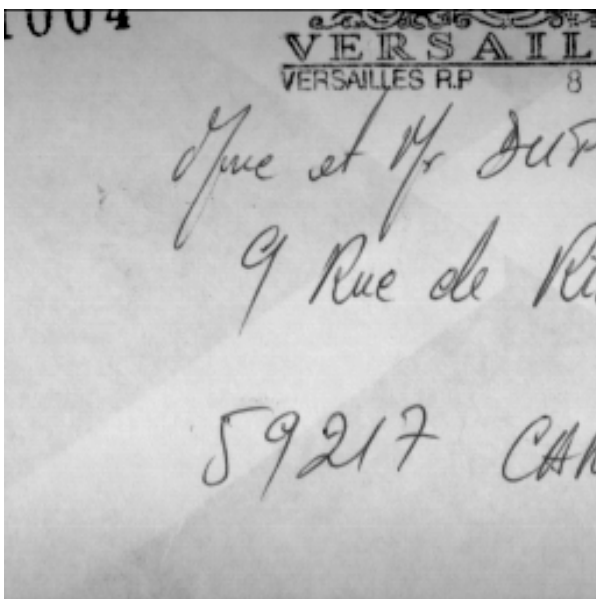 1004
VERSAIL
VERSAILLES R.P 8
Mme et Mr DUP
9 Rue de Ri
59217 CAR